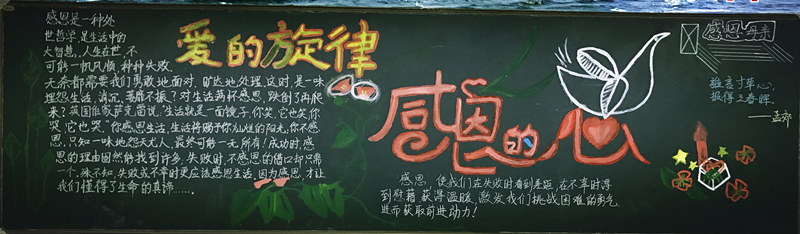 感恩是一种处
世哲学,是生活中的
大智慧,人生在世,不
可能一帆风顺,种种失败、
无奈都需要我们勇敢地面对,旷达地处理。这时,是一味
埋怨生活,消沉、萎靡不振?对生活满怀感恩,跌倒了再爬起
来?英国作家萨克雷说:"生活就是一面镜子,你笑,它也笑,你
哭,它也哭。"你感恩生活,生活将赐予你灿烂的阳光,你不感
恩,只知一味地怨天尤人,最终可能一无所有!成功时,感
恩的理由固然能找到许多,失败时,不感恩的借口却只需
一个。殊不知,失败或不幸时更应该感恩生活,因为感恩,才让
我们懂得了生命的真谛......
爱的旋律
感恩的心
感恩,使我们在失败时看到差距,在不幸时得
到慰藉 获得温暖,激发我们挑战困难的勇气,
进而获取前进动力!
感恩母亲
谁言寸草心,
报得三春晖。
——孟郊